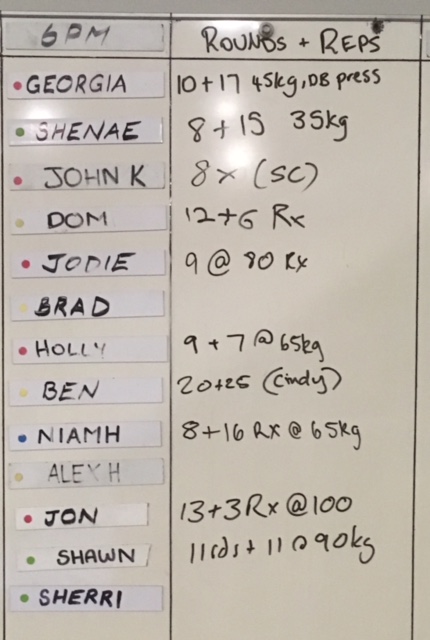 6PM ROUNDS + REPS
GEORGIA 10+17 45kg, DB press
SHENAE 8+15 35kg
JOHN K 8x (SC)
DOM 12+6 Rx
JODIE 9 @ 80 Rx
BRAD
HOLLY 9+7 @ 65kg
BEN 20+25 (Cindy)
NIAMH 8+16 Rx @ 65kg
ALEX H
JON 13+3 Rx @100
SHAWN 11rds + 11 @ 90kg
SHERRI